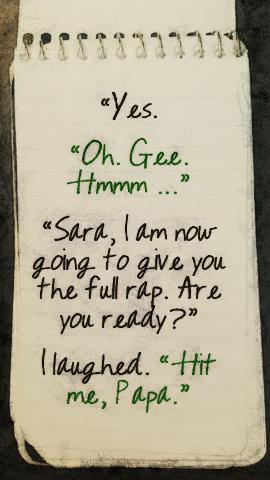 “Yes.
“Oh. Gee.
Hmmm ...”
“Sara, I am now
going to give you
the full rap. Are
you ready?”
I laughed. “Hit
me, Papa.”